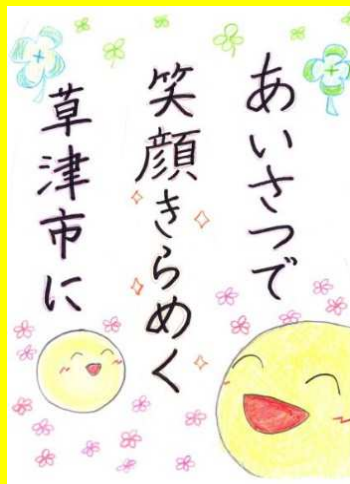 あいさつで
笑顔きらめく
草津市に